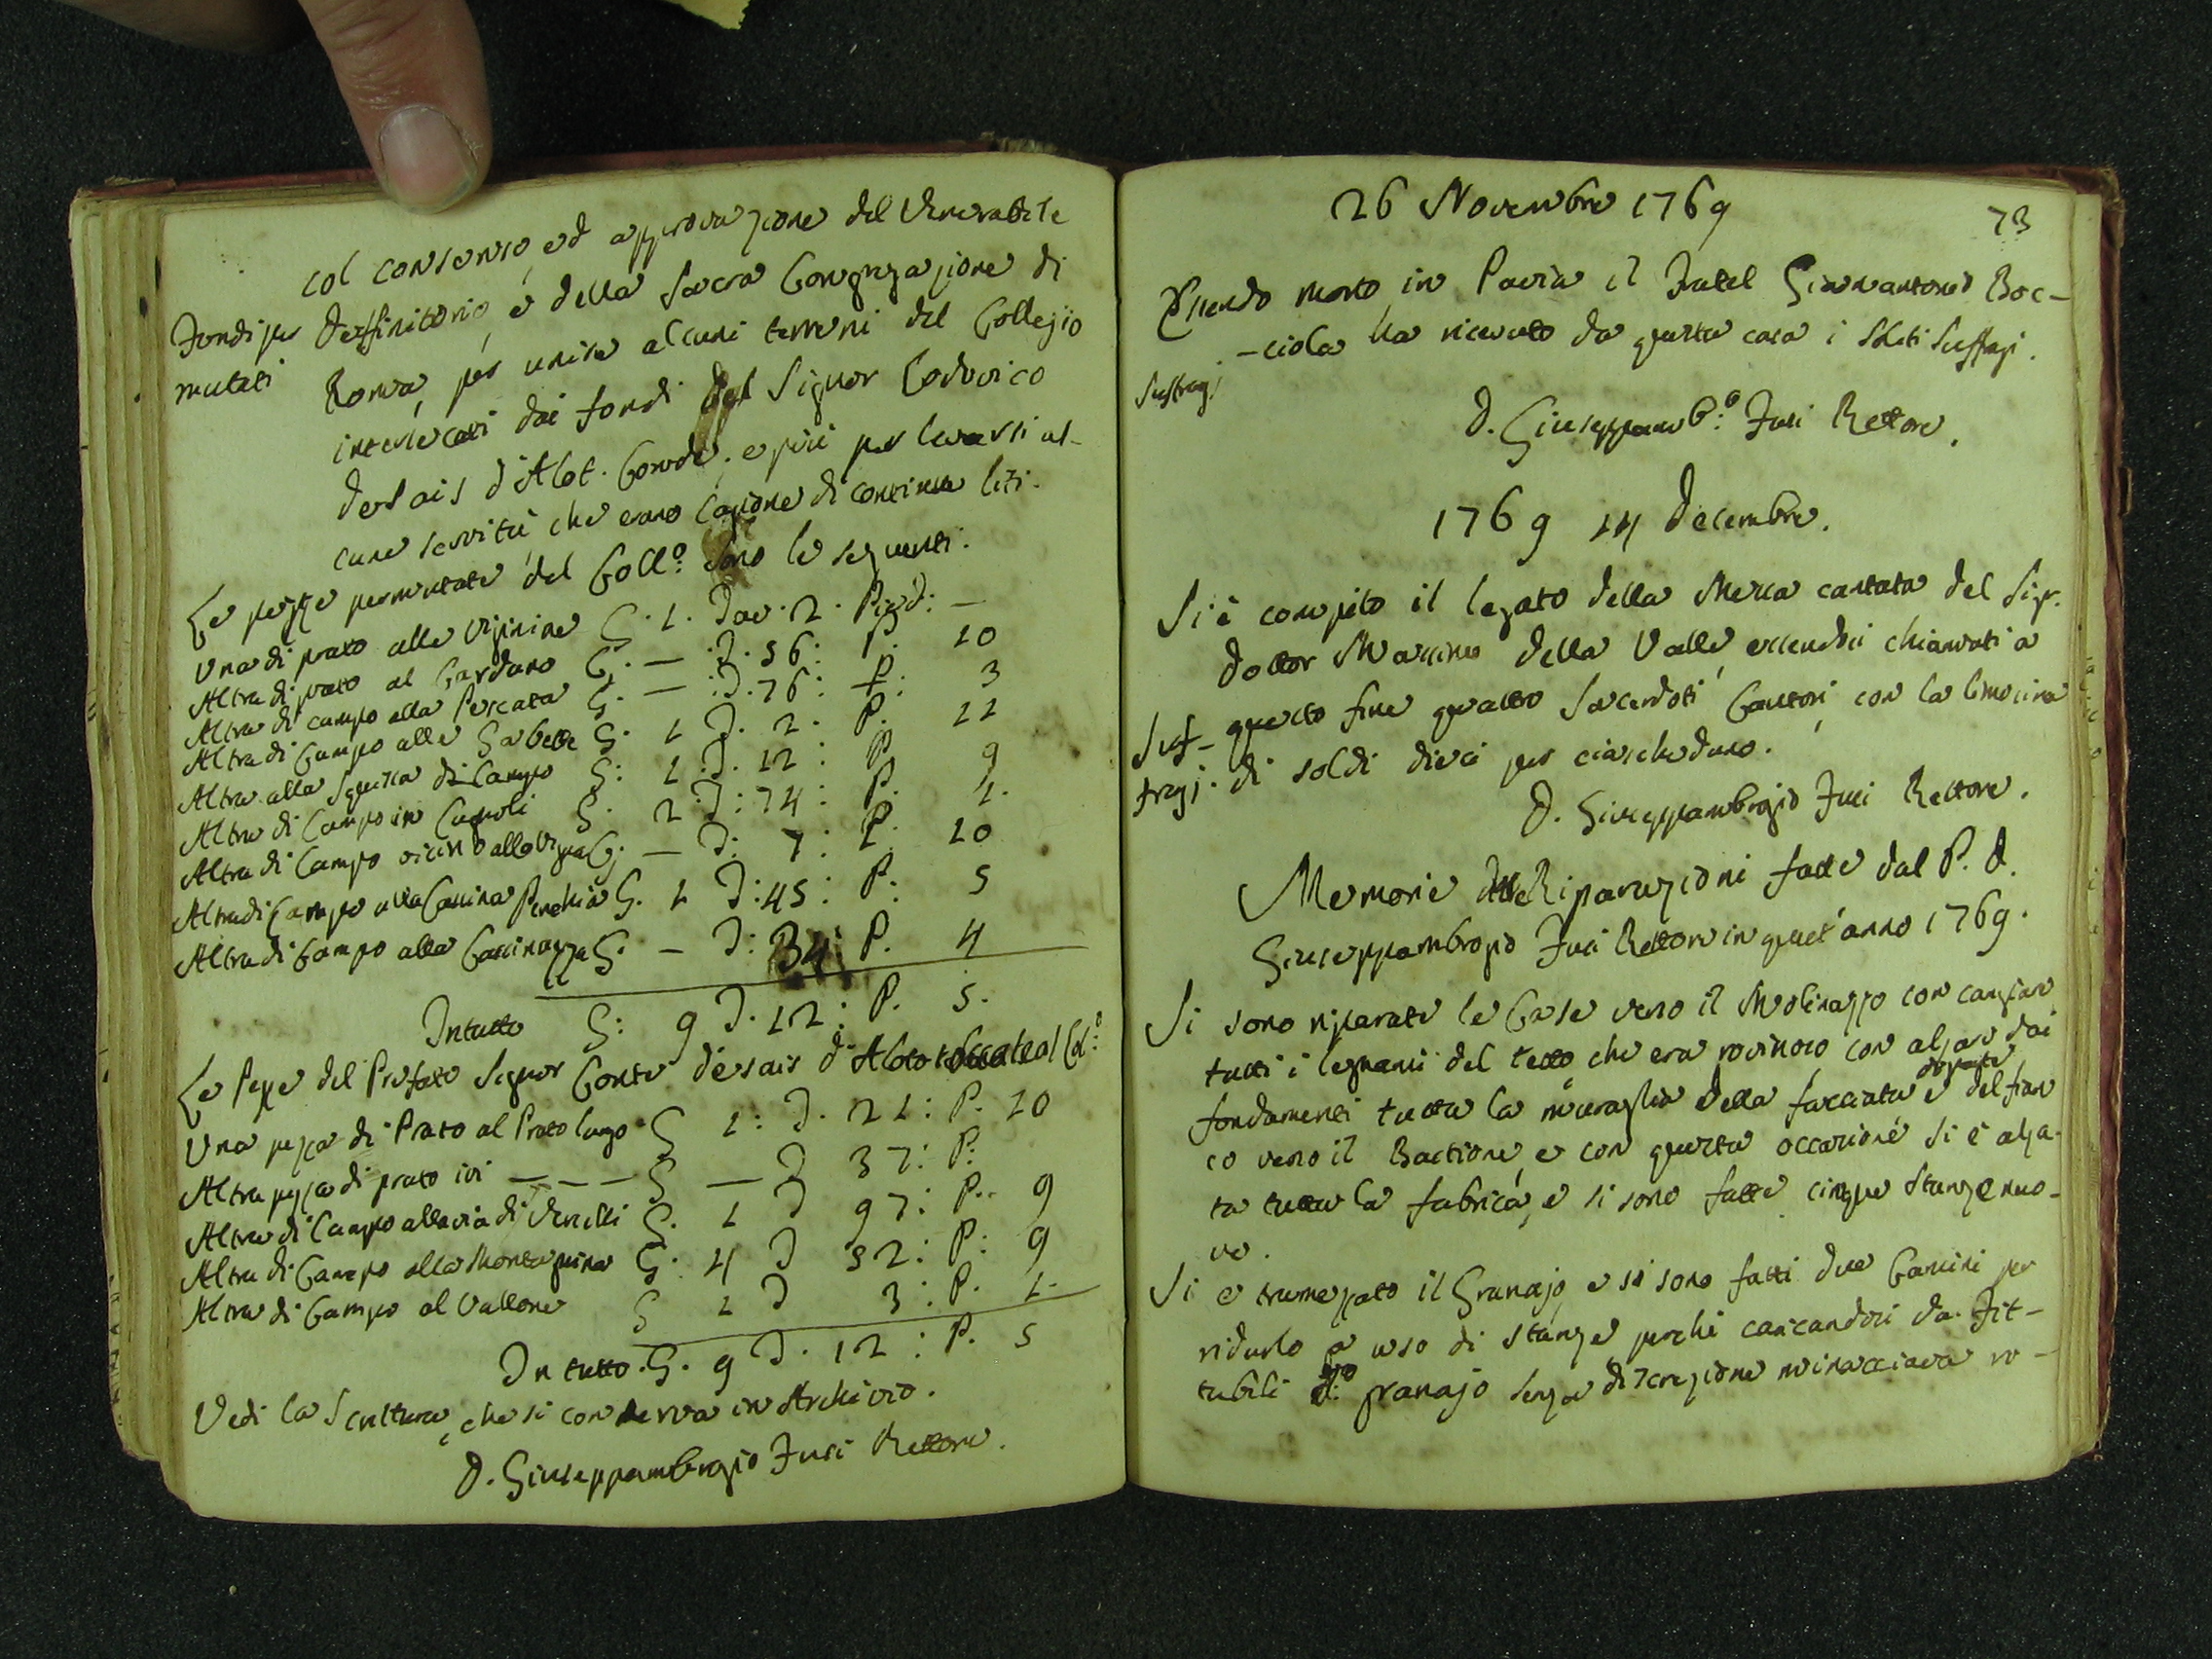 col consenso, ed approvazione del Venerabile
Fondi per Deffinitorio, e della Sacra Congregazione di
mutati Roma, per unire alcuni terreni del Collegio
intersecati dai fondi del Signor Lodovico
Desais d'Alot. Conte; e più per levarsi al-
cune servitù che erano cagione di continue liti.
Le pezze permutate del Coll.o sono le seguenti.
Una di prato alle Viginine G. 1. Tav. 2. Pied: —
Altra di prato al Cardano G. — T. 56: P. 10
Altra di campo alla Pescata G. — : T. 76: P: 3
Altra di Campo alle Gabelle G. 1 T. 2. P. 11
Altra alla Squissa di Campo G: 1 T. 12: P. 9
Altra di Campo in Cagnoli G. 2 T: 74: P. 1.
Altra di Campo vicino alla Vigna G: — T: 7: P. 10
Altra di Campo alla Cassina Perchia G. 1 T: 45: P: 5
Altra di Campo alla Cassinazza G. — T: 34: P. 4
In tutto G: 9 T. 12: P. 5.
Le Pezze del Prefato Signor Conte Desais d'Aloto toccate al Col:o
Una pezza di Prato al Prato lungo G 1: T. 21: P. 10
Altra pezza di prato ivi — — — G — T 37: P:
Altra di Campo alla via di Vercelli G. 1 T 97: P.. 9
Altra di Campo alla Montagnina G. 4 T 52: P: 9
Altra di Campo al Vallone G 1 T 3: P. 1.
In tutto. G. 9 T. 12: P. 5
Vedi la Scrittura, che si conserva in Archivio.
D. Giuseppambrogio Fusi Rettore.
26 Novembre 1769
73
Essendo morto in Pavia il Fratel Giovanantonio Boc-
-ciola ha ricevuto da questa casa i Soliti Suffragi.
Suffragj
D. Giuseppamb:o Fusi Rettore.
1769 14 Decembre.
Si è compito il legato della Messa cantata del Sigr.
Dottor Massimo della Valle, essendosi chiamati a
Suf- questo fine quattro Sacerdoti Cantori, con la limosina
fragj. di soldi dieci per ciascheduno.
D. Giuseppambrogio Fusi Rettore.
Memorie delle Riparazioni fatte dal P. D.
Giuseppambrogio Fusi Rettore in quest'anno 1769.
Si sono riparate le Case verso il Molinazzo con cangiare
tutti i legnami del tetto, che era rovinoso con alzare dai
fondamenti tutta la muraglia della facciata e del fian
co verso il Bastione, e con questa occasione si è alza-
ta tutta la fabrica, e si sono fatte cinque Stanze nuo-
ve.
Si è tramezzato il Granajo, e si sono fatti due Camini per
ridurlo a uso di stanze, perchè caricandosi da. Fit-
tabili d:o granajo senza discrezione minacciava ro-